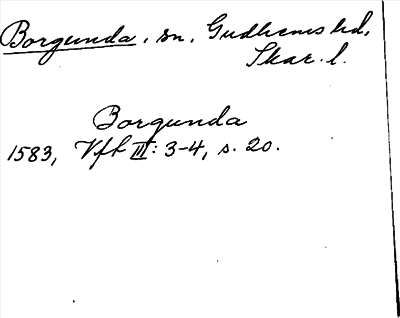 Borgunda, sn, Gudhems hd,
Skar. l.
Borgunda
1583, Vfl III: 3-4, s. 20.